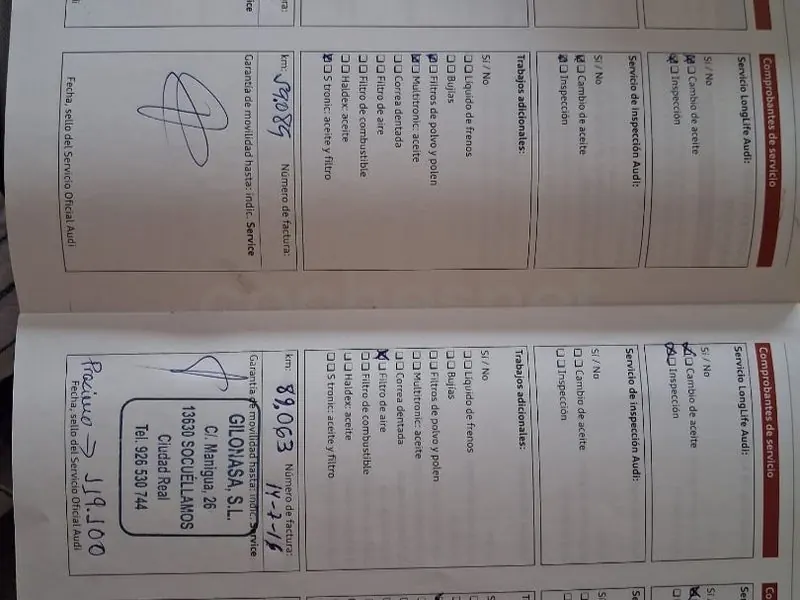 Comprobantes de servicio
Servicio LongLife Audi:
Sí / No
Cambio de aceite
Inspección
Servicio de inspección Audi:
Sí / No
Cambio de aceite
Inspección
Trabajos adicionales:
Sí / No
Líquido de frenos
Bujías
Filtros de polvo y polen
Multitronic: aceite
Correa dentada
Filtro de aire
Filtro de combustible
Haldex: aceite
S tronic: aceite y filtro
km: 59.089 Número de factura:
Garantía de movilidad hasta: indic. Service
Fecha, sello del Servicio Oficial Audi
Comprobantes de servicio
Servicio LongLife Audi:
Sí / No
Cambio de aceite
Inspección
Servicio de inspección Audi:
Sí / No
Cambio de aceite
Inspección
Trabajos adicionales:
Sí / No
Líquido de frenos
Bujías
Filtros de polvo y polen
Multitronic: aceite
Correa dentada
Filtro de aire
Filtro de combustible
Haldex: aceite
S tronic: aceite y filtro
km: 89,063 Número de factura:
14-7-16
Garantía de movilidad hasta: indic. Service
GILONASA, S.L.
C/. Manigua, 26
13630 SOCUELLAMOS
Ciudad Real
Tel. 926 530 744
Proximo → 119.100
Fecha, sello del Servicio Oficial Audi